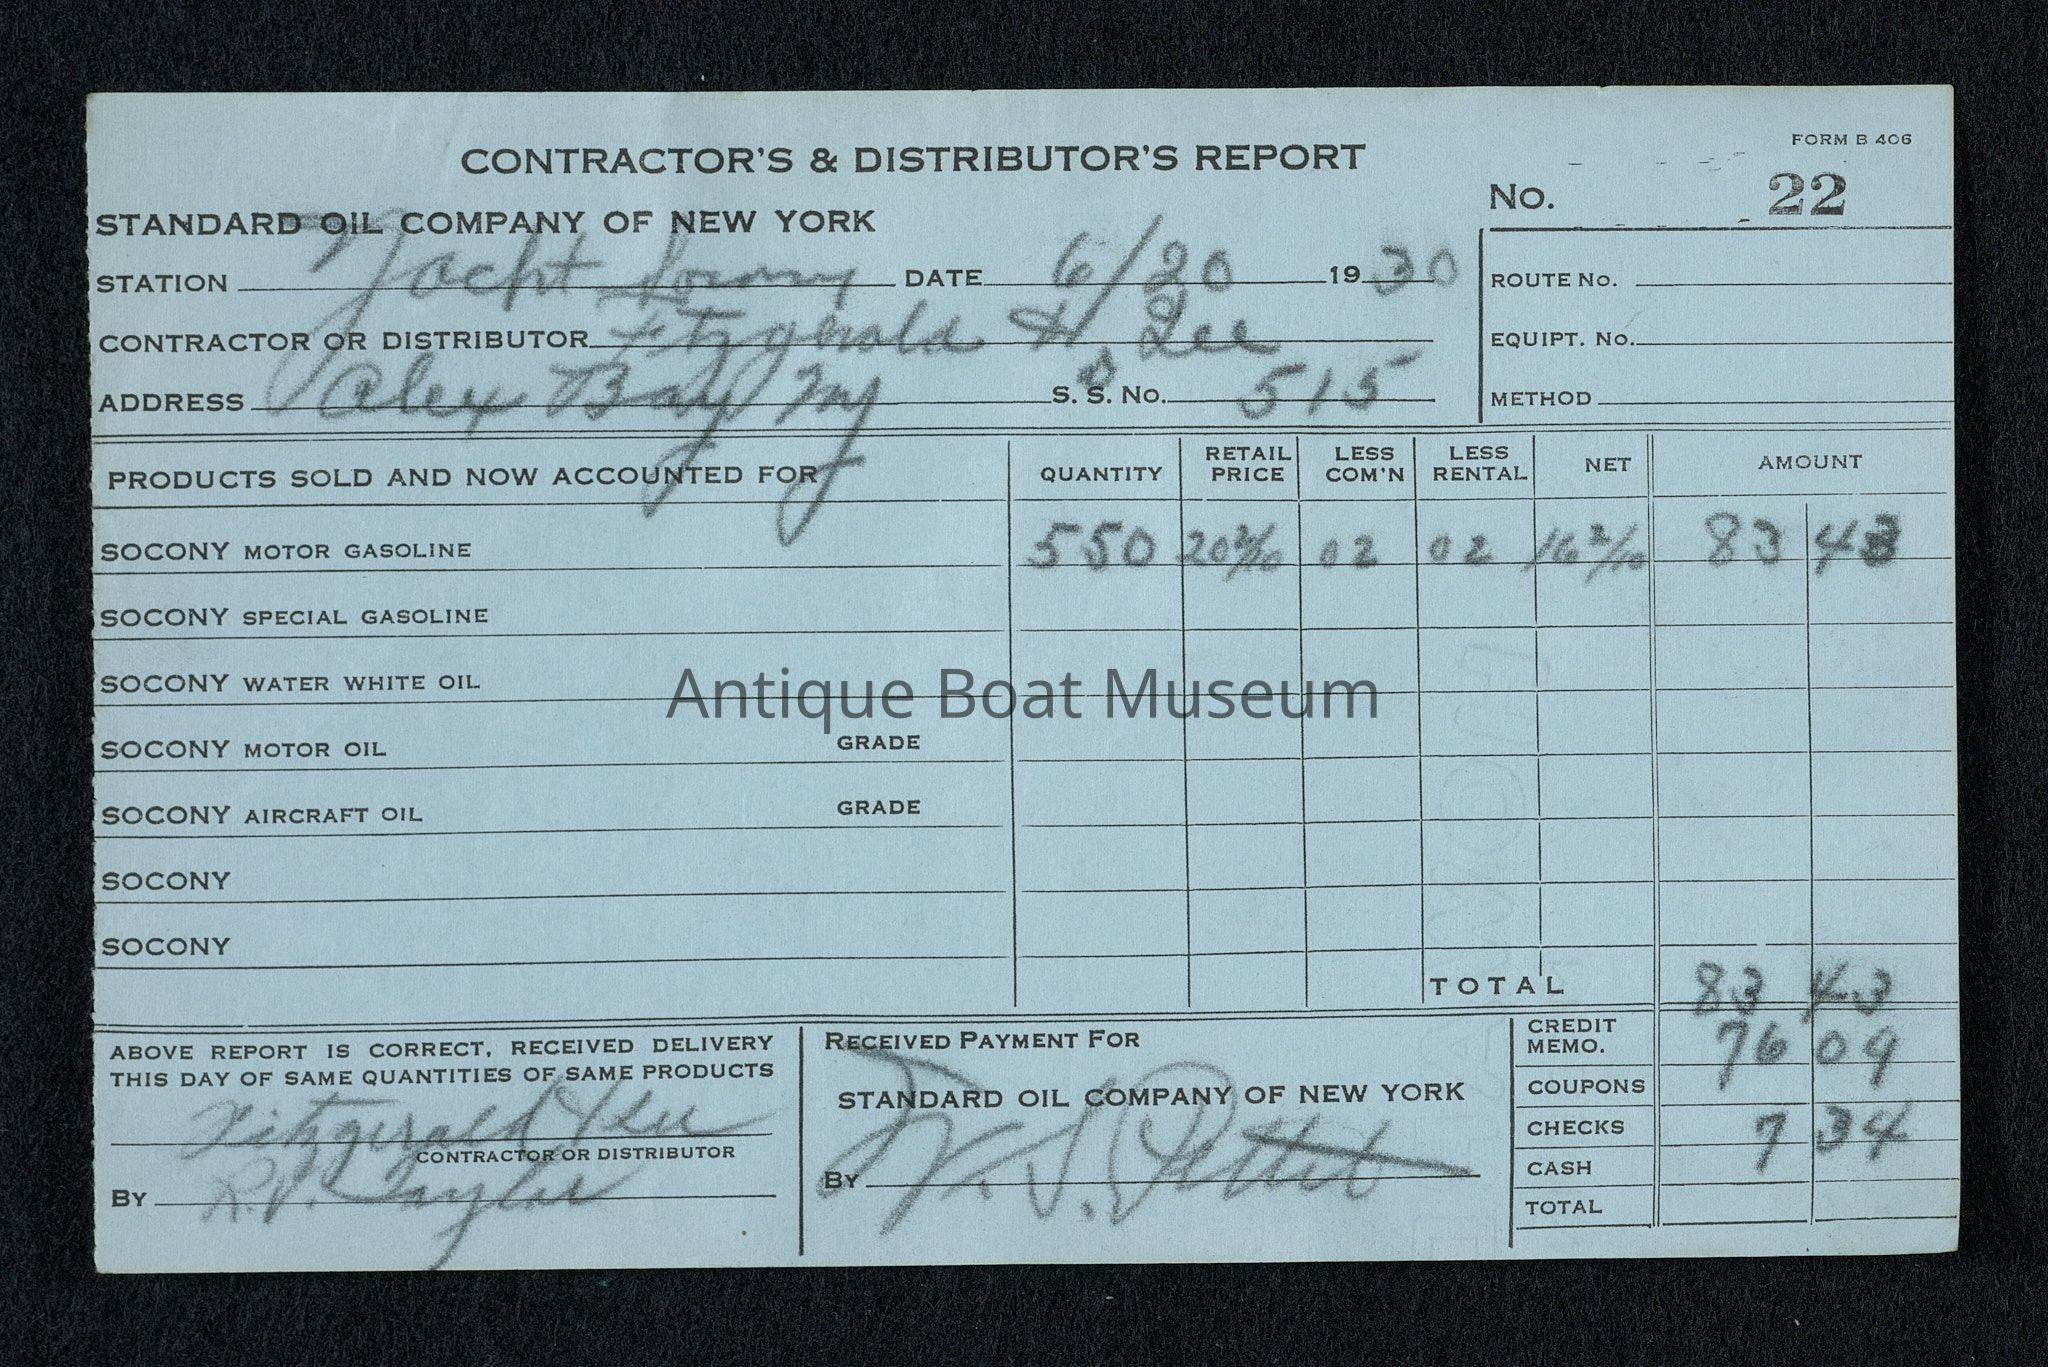 FORM B 406
CONTRACTOR'S & DISTRIBUTOR'S REPORT
No. 22
STANDARD OIL COMPANY OF NEW YORK
STATION Yacht DATE 6/20 1930
ROUTE No.
CONTRACTOR OR DISTRIBUTOR Fitzgerald & Lee
EQUIPT. No.
ADDRESS Alex Bay NY S. S. No. 515
METHOD
PRODUCTS SOLD AND NOW ACCOUNTED FOR QUANTITY RETAIL PRICE LESS COM'N LESS RENTAL NET AMOUNT
SOCONY MOTOR GASOLINE 550 20 2/10 02 02 16 2/10 83 43
SOCONY SPECIAL GASOLINE
SOCONY WATER WHITE OIL
Antique Boat Museum
SOCONY MOTOR OIL GRADE
SOCONY AIRCRAFT OIL GRADE
SOCONY
SOCONY
TOTAL 83 43
ABOVE REPORT IS CORRECT, RECEIVED DELIVERY
THIS DAY OF SAME QUANTITIES OF SAME PRODUCTS
Fitzgerald & Lee
CONTRACTOR OR DISTRIBUTOR
BY R.V. Taylor
RECEIVED PAYMENT FOR
STANDARD OIL COMPANY OF NEW YORK
BY W. S. Pettit
CREDIT MEMO. 76 09
COUPONS
CHECKS 7 34
CASH
TOTAL